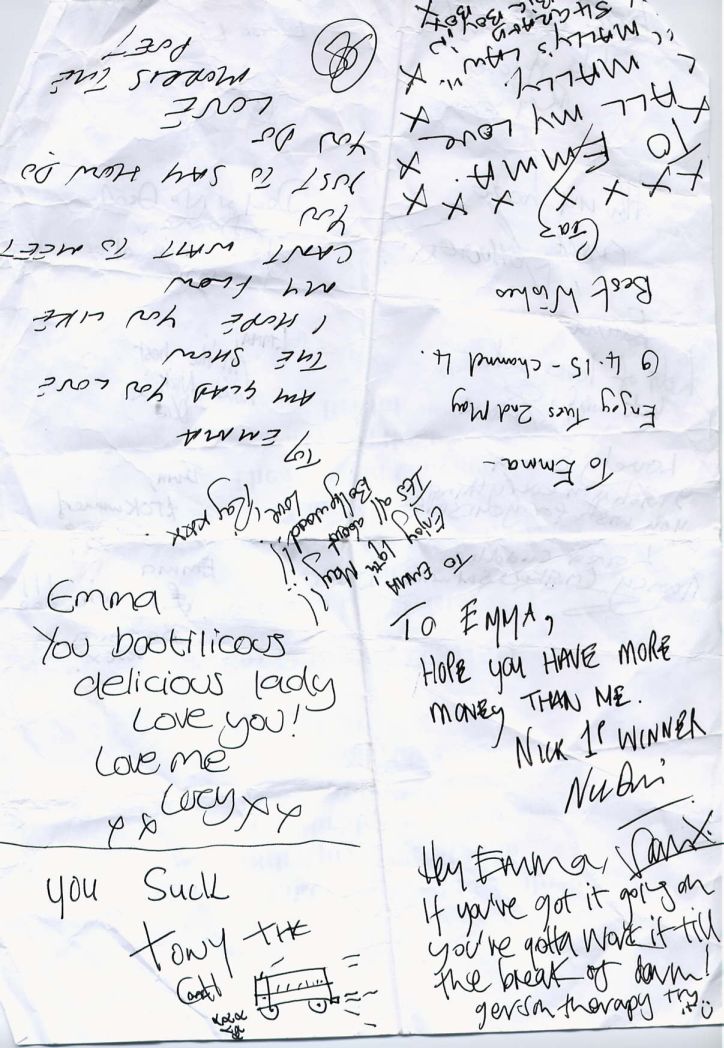 To EMMA
AM GLAD YOU LOVE
THE SHOW
I HOPE YOU LIKE
MY FLOW
CANT WAIT TO MEET
YOU
JUST TO SAY HOW DO
YOU DO
LOVE
MORRIS THE
POET
To Emma -
Enjoy Tues 2nd May
@ 4.15 - channel 4.
Best Wishes
Gaz
TO EMMA.
ALL MY LOVE
MALLY.
"MALLY'S LAW"
TO EMMA
Enjoy 19th May
ITS all about
Bollywood!!!
Love, Ray xxx
Emma
You bootilicous
delicious lady
Love you!
Love me
Lucy xx
x x
TO EMMA,
HOPE YOU HAVE MORE
MONEY THAN ME.
NICK 1P WINNER
you Suck
Tony THE
Hey Emma,
If you've got it going on
you're gotta work it till
the break of dawn!
gerson therapy try it